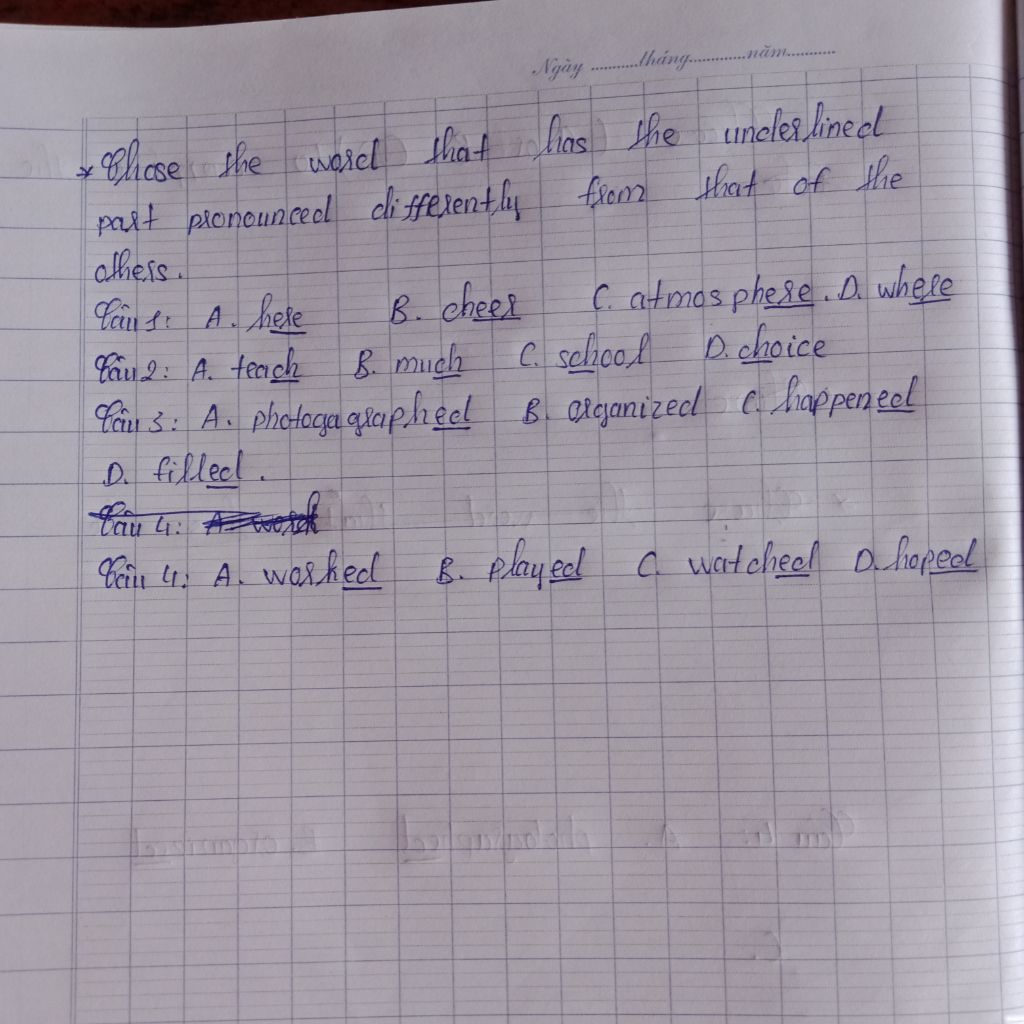 Ngày ..........tháng............năm..........
* Chose the word that has the underlined
part pronounced differently from that of the
others.
Câu 1: A. here B. cheer C. atmosphere. D. where
Câu 2: A. teach B. much C. school D. choice
Câu 3: A. photogagraphed B. organized C. happened
D. filled.
Câu 4: A. work
Câu 4: A. worked B. played C. watched D. hoped